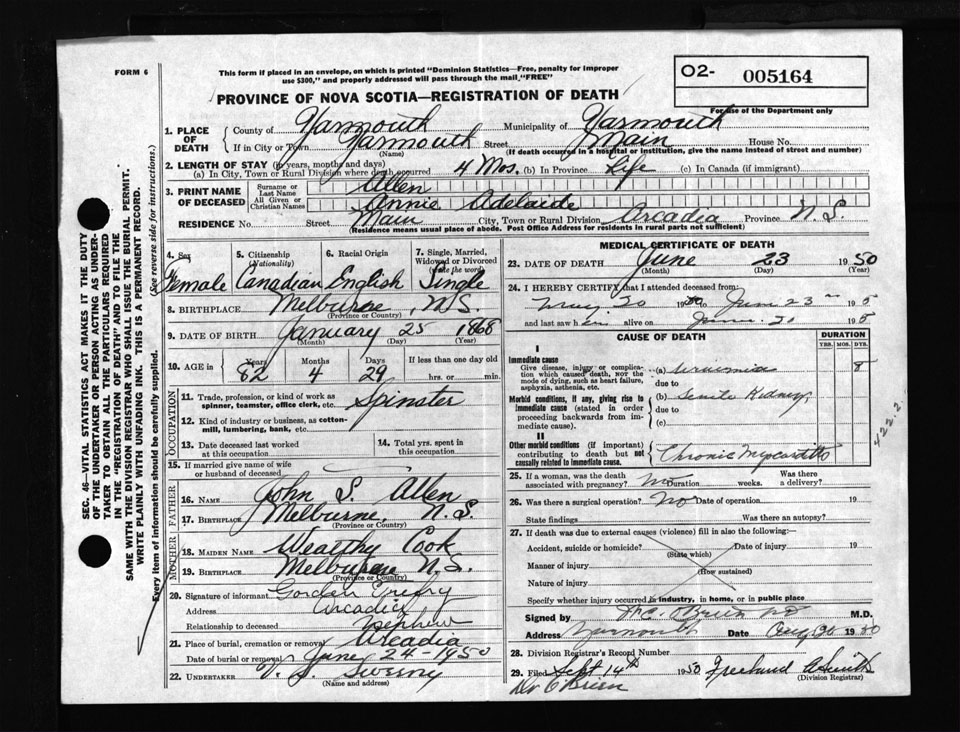 FORM 6
This form if placed in an envelope, on which is printed "Dominion Statistics—Free, penalty for improper
use $300," and properly addressed will pass through the mail "FREE"
O2- 005164
For use of the Department only
PROVINCE OF NOVA SCOTIA—REGISTRATION OF DEATH
1. PLACE OF DEATH
County of Yarmouth Municipality of Yarmouth
If in City or Town Yarmouth (Name) Street Main House No.
(If death occurred in a hospital or institution, give the name instead of street and number)
2. LENGTH OF STAY (in years, months and days)
(a) In City, Town or Rural Division where death occurred 4 Mos. (b) In Province Life (c) In Canada (if immigrant)
3. PRINT NAME OF DECEASED
Surname or Last Name Allen
All Given or Christian Names Annie Adelaide
RESIDENCE No. Street Main City, Town or Rural Division Arcadia Province N.S.
(Residence means usual place of abode. Post Office Address for residents in rural parts not sufficient)
4. Sex Female
5. Citizenship (Nationality) Canadian
6. Racial Origin English
7. Single, Married, Widowed or Divorced (write the word) Single
8. BIRTHPLACE Melburne, N.S.
(Province or Country)
9. DATE OF BIRTH January 25 1868
(Month) (Day) (Year)
10. AGE in Years 82 Months 4 Days 29 If less than one day old hrs. or min.
OCCUPATION
11. Trade, profession, or kind of work as spinner, teamster, office clerk, etc. Spinster
12. Kind of industry or business, as cotton-mill, lumbering, bank, etc.
13. Date deceased last worked at this occupation
14. Total yrs. spent in this occupation
15. If married give name of wife or husband of deceased
FATHER
16. NAME John S. Allen
17. BIRTHPLACE Melburne, N.S.
(Province or Country)
MOTHER
18. MAIDEN NAME Wealthy Cook
19. BIRTHPLACE Melburne N.S.
(Province or Country)
20. Signature of informant Gordon
Address Arcadia
Relationship to deceased Nephew
21. Place of burial, cremation or removal Arcadia
Date of burial or removal June 24-1950
22. UNDERTAKER V. S. Sweeny
(Name and address)
MEDICAL CERTIFICATE OF DEATH
23. DATE OF DEATH June 23 1950
(Month) (Day) (Year)
24. I HEREBY CERTIFY that I attended deceased from:
May 20 1950 to June 23 195
and last saw h er alive on June 20 195
CAUSE OF DEATH
DURATION
YRS. MOS. DYS
I
Immediate cause
Give disease, injury or complication which caused death, not the mode of dying, such as heart failure, asphyxia, asthenia, etc.
(a) Uraemia 8
due to
Morbid conditions, if any, giving rise to immediate cause (stated in order proceeding backwards from immediate cause).
(b) Senile Kidney
due to
(c)
II
Other morbid conditions (if important) contributing to death but not causally related to immediate cause.
Chronic Myocarditis
422.2
25. If a woman, was the death associated with pregnancy? No Duration weeks. Was there a delivery?
26. Was there a surgical operation? No Date of operation 19
State findings Was there an autopsy?
27. If death was due to external causes (violence) fill in also the following:
Accident, suicide or homicide? Date of injury 19
(State which)
Manner of injury
(How sustained)
Nature of injury
Specify whether injury occurred in industry, in home, or in public place
Signed by O'Brien MD M.D.
Address Yarmouth Date Aug 1950
28. Division Registrar's Record Number
29. Filed Sept 14th 1950 Freeland
(Division Registrar)
Dr O'Brien
SEC. 46—VITAL STATISTICS ACT MAKES IT THE DUTY
OF THE UNDERTAKER OR PERSON ACTING AS UNDER-
TAKER TO OBTAIN ALL THE PARTICULARS REQUIRED
IN THE "REGISTRATION OF DEATH" AND TO FILE THE
SAME WITH THE DIVISION REGISTRAR WHO SHALL ISSUE THE BURIAL PERMIT.
WRITE PLAINLY WITH UNFADING INK. THIS IS A PERMANENT RECORD.
Every item of information should be carefully supplied. (See reverse side for instructions.)